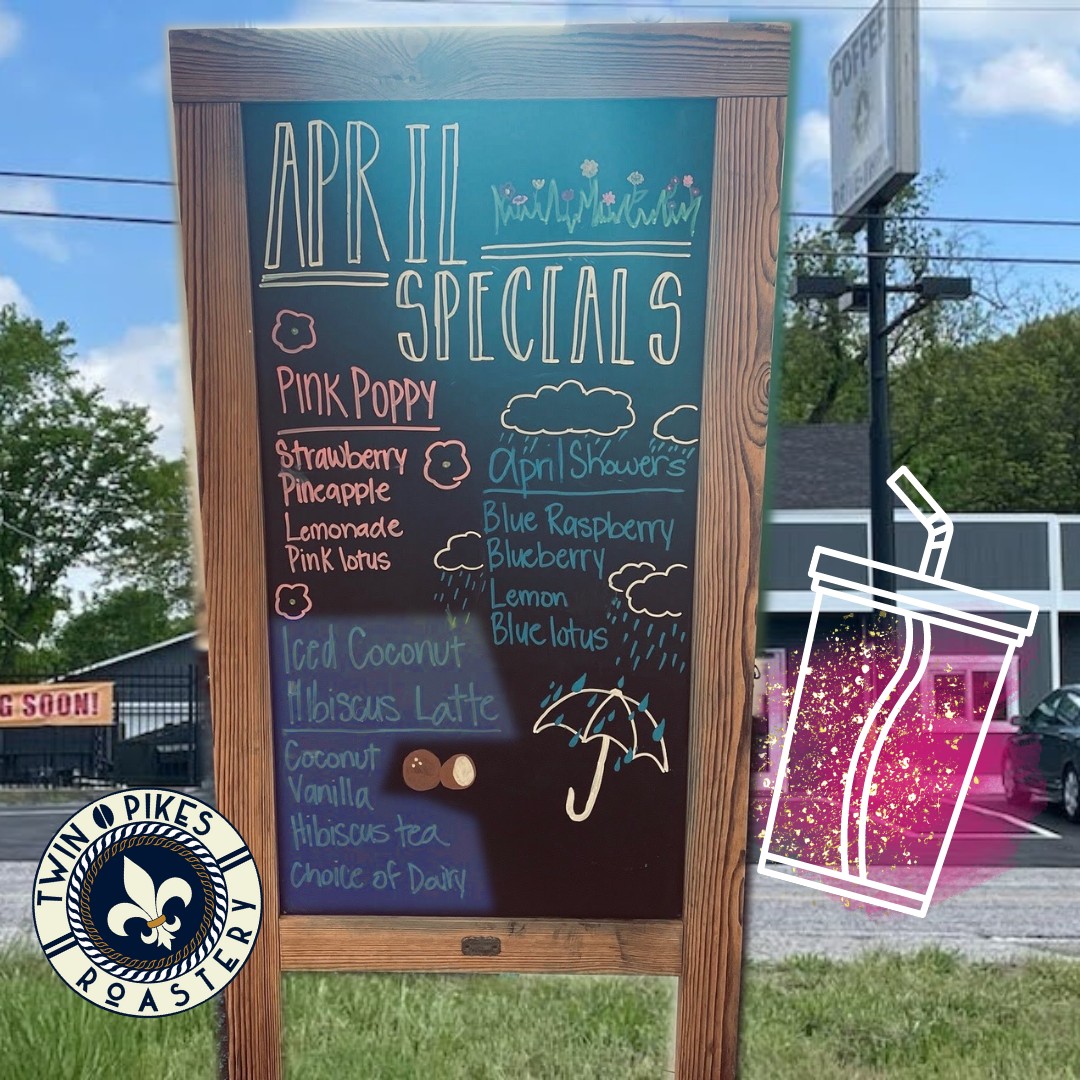 APRIL
SPECIALS
PINK POPPY
Strawberry
Pineapple
Lemonade
Pink lotus
April Showers
Blue Raspberry
Blueberry
Lemon
Blue lotus
Iced Coconut
Hibiscus Latte
Coconut
Vanilla
Hibiscus tea
Choice of Dairy
COFFEE
G SOON!
TWIN PIKES
ROASTERY